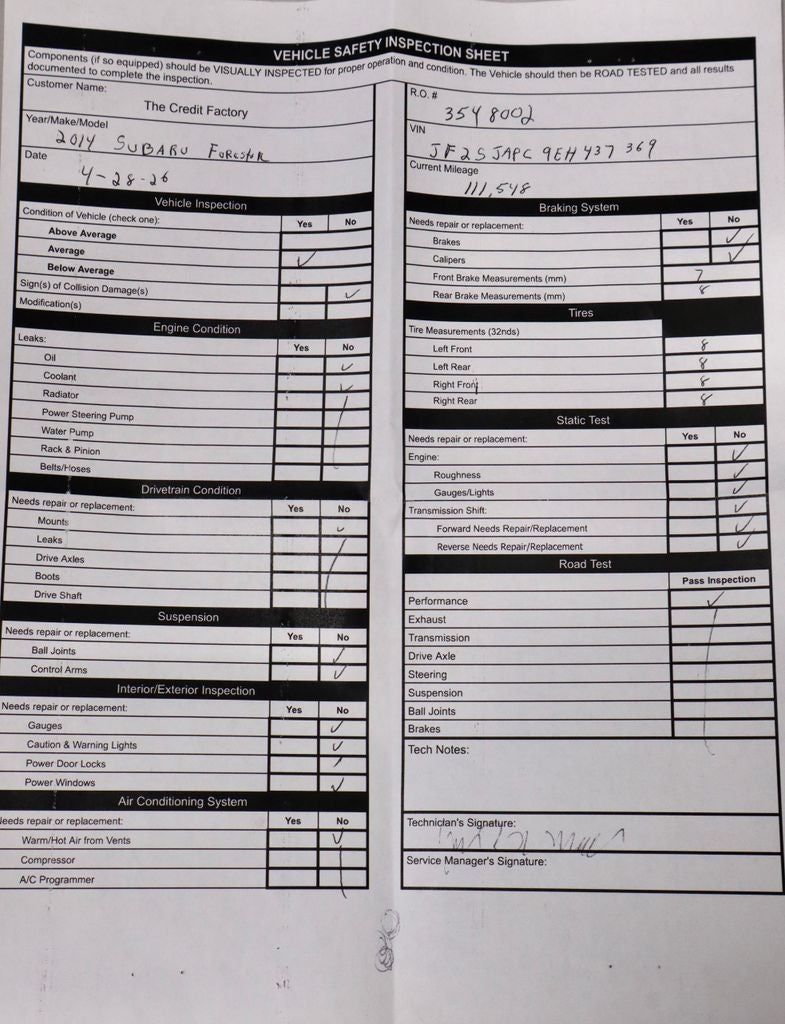 VEHICLE SAFETY INSPECTION SHEET
Components (if so equipped) should be VISUALLY INSPECTED for proper operation and condition. The Vehicle should then be ROAD TESTED and all results
documented to complete the inspection.
Customer Name:
The Credit Factory
Year/Make/Model
2014 SUBARU FORESTER
Date
4-28-26
Vehicle Inspection
Condition of Vehicle (check one): Yes No
Above Average
Average ✓
Below Average
Sign(s) of Collision Damage(s) ✓
Modification(s)
Engine Condition
Leaks: Yes No
Oil ✓
Coolant ✓
Radiator
Power Steering Pump
Water Pump
Rack & Pinion
Belts/Hoses
Drivetrain Condition
Needs repair or replacement: Yes No
Mounts ✓
Leaks
Drive Axles
Boots
Drive Shaft
Suspension
Needs repair or replacement: Yes No
Ball Joints ✓
Control Arms ✓
Interior/Exterior Inspection
Needs repair or replacement: Yes No
Gauges ✓
Caution & Warning Lights ✓
Power Door Locks ✓
Power Windows ✓
Air Conditioning System
eeds repair or replacement: Yes No
Warm/Hot Air from Vents ✓
Compressor
A/C Programmer
R.O. #
3548002
VIN
JF2SJAPC9EH437369
Current Mileage
111,548
Braking System
Needs repair or replacement: Yes No
Brakes ✓
Calipers ✓
Front Brake Measurements (mm) 7
Rear Brake Measurements (mm) 8
Tires
Tire Measurements (32nds)
Left Front 8
Left Rear 8
Right Front 8
Right Rear 8
Static Test
Needs repair or replacement: Yes No
Engine: ✓
Roughness ✓
Gauges/Lights ✓
Transmission Shift: ✓
Forward Needs Repair/Replacement ✓
Reverse Needs Repair/Replacement ✓
Road Test
Pass Inspection
Performance ✓
Exhaust
Transmission
Drive Axle
Steering
Suspension
Ball Joints
Brakes
Tech Notes:
Technician's Signature:
Service Manager's Signature: